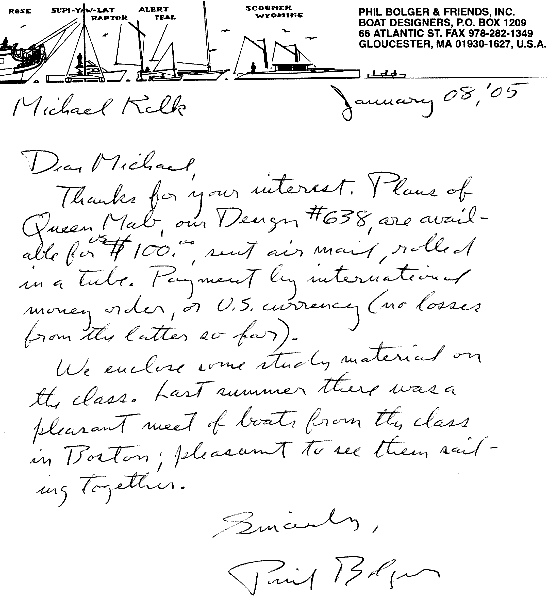 ROSE SUPI-YAW-LAT RAPTOR ALERT TEAL SCOONER WYOMING
PHIL BOLGER & FRIENDS, INC.
BOAT DESIGNERS, P.O. BOX 1209
66 ATLANTIC ST. FAX 978-282-1349
GLOUCESTER, MA 01930-1627, U.S.A.
Michael Kalk
January 08, '05
Dear Michael,
Thanks for your interest. Plans of
Queen Mab, our Design #638, are avail-
able for US $100.00, sent air mail, rolled
in a tube. Payment by international
money order, or U.S. currency (no losses
from the latter so far).
We enclose some study material on
the class. Last summer there was a
pleasant meet of boats from the class
in Boston; pleasant to see them sail-
ing together.
Sincerely,
Phil Bolger